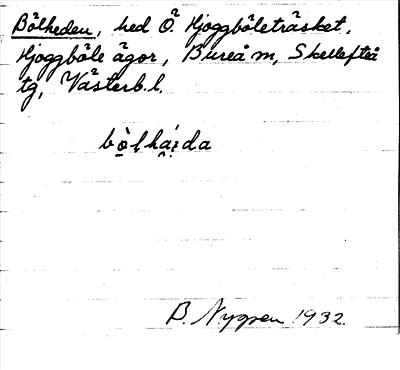 Bölheden, hed Ö. Hjoggböleträsket,
Hjoggböle ägor, Bureå sn, Skellefteå
tg, Västerb. l.
bo̱̖lhá̖ı̣da
B. Nygren 1932.